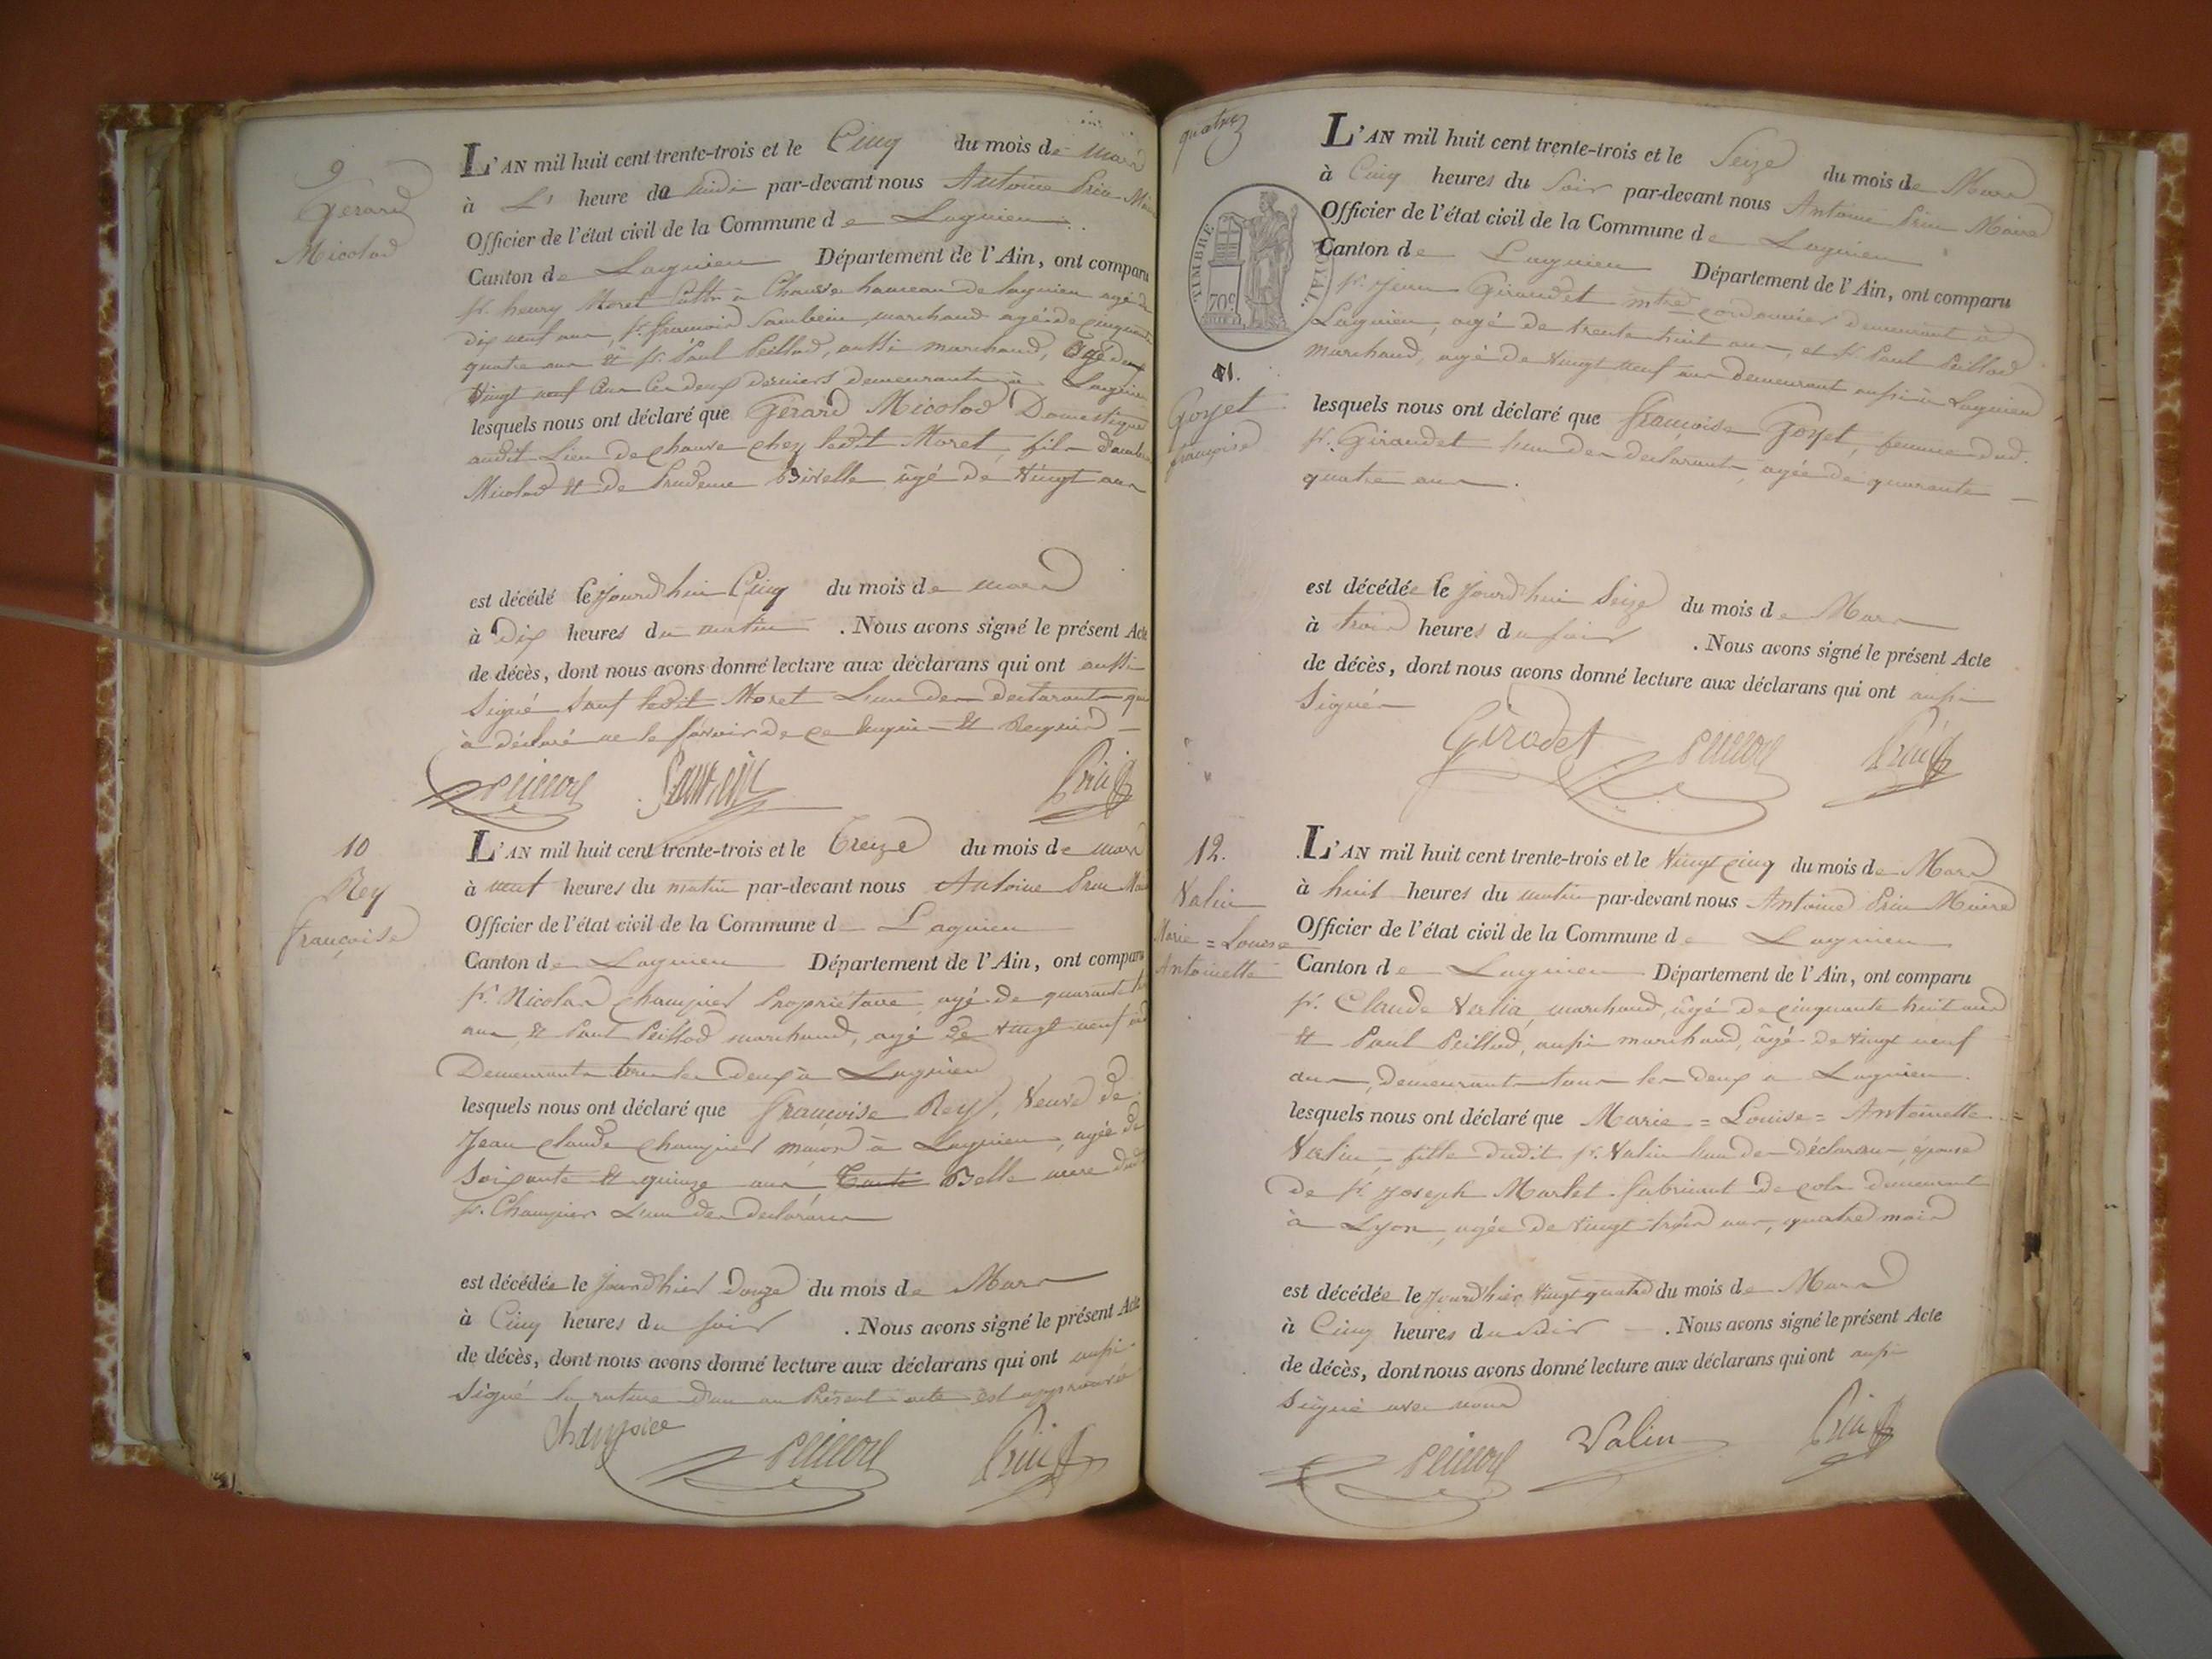 9
Gerard
Nicolas
L'AN mil huit cent trente-trois et le Cinq du mois de mars
à L' heure de midi par-devant nous Antoine Prin
Officier de l'état civil de la Commune de Lagnieu
Canton de Lagnieu Département de l'Ain, ont comparu
sr. henry Moret à Chauve hameau de lagnieu agé de
dix neuf ans, sr. françois marchand agé de cinquante
quatre ans et sr. Paul Peillod, aussi marchand, agé de
Vingt neuf ans Ces deux derniers demeurants à Lagnieu
lesquels nous ont déclaré que Gérard Nicolas Domestique
audit Lieu de chauve chez ledit Moret, fils
Nicolas et de Prudence âgé de Vingt ans
est décédé le jourd'hui Cinq du mois de mars
à Dix heures du matin . Nous avons signé le présent Acte
de décès, dont nous avons donné lecture aux déclarans qui ont aussi
Signé Sauf ledit Moret L'un des declarants qui
à déclaré ne le savoir de ce Enquis et Requis
10
Rey
françoise
L'AN mil huit cent trente-trois et le Treize du mois de mars
à neuf heures du matin par-devant nous Antoine Prin
Officier de l'état civil de la Commune de Lagnieu
Canton de Lagnieu Département de l'Ain, ont comparu
sr. Nicolas Propriétaire agé de quarante
ans, et Paul Peillod marchand, agé de vingt neuf ans
Demeurants tous les deux à Lagnieu
lesquels nous ont déclaré que françoise Rey, Veuve de
Jean claude maçon à Lagnieu, agée de
Soixante et quinze ans, Belle mere dudit
sr. L'un des declarans
est décédée le jourd'hier Douze du mois de Mars
à Cinq heures du soir . Nous avons signé le présent Acte
de décès, dont nous avons donné lecture aux déclarans qui ont aussi
Signé la rature au Présent acte est approuvé
quatre
TIMBRE ROYAL.
70c
11.
Goyet
françoise
L'AN mil huit cent trente-trois et le Seize du mois de Mars
à Cinq heures du Soir par-devant nous Antoine Prin Maire
Officier de l'état civil de la Commune de Lagnieu
Canton de Lagnieu Département de l'Ain, ont comparu
sr. Giraudet cordonnier demeurant à
Lagnieu, agé de trente huit ans, et sr. Paul Peillod
marchand, agé de Vingt neuf ans demeurant aussi à Lagnieu
lesquels nous ont déclaré que françoise Goyet, femme dud.
sr. Giraudet l'un des declarants, agée de quarante
quatre ans.
est décédée le jourd'hui Seize du mois de Mars
à trois heures du soir . Nous avons signé le présent Acte
de décès, dont nous avons donné lecture aux déclarans qui ont aussi
Signés
Girodet
12.
Valin
Marie = Louise
Antoinette
L'AN mil huit cent trente-trois et le Vingt cinq du mois de Mars
à huit heures du matin par-devant nous Antoine Prin Maire
Officier de l'état civil de la Commune de Lagnieu
Canton de Lagnieu Département de l'Ain, ont comparu
sr. Claude Valin, marchand, âgé de cinquante huit ans
et Paul Peillod, aussi marchand, âgé de vingt neuf
ans, demeurants tous les deux à Lagnieu.
lesquels nous ont déclaré que Marie = Louise = Antoinette =
Valin, fille dudit sr. Valin l'un des déclarans, épouse
de sr. Joseph Marlet fabricant de cols demeurant
à Lyon, agée de vingt trois ans, quatre mois
est décédée le jourd'hier Vingt quatre du mois de Mars
à Cinq heures du soir . Nous avons signé le présent Acte
de décès, dont nous avons donné lecture aux déclarans qui ont aussi
Signé avec nous
Valin